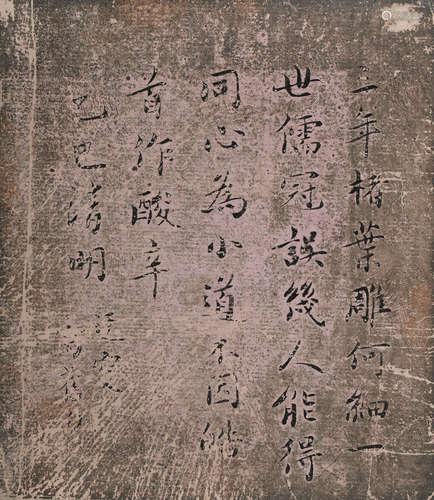 三年楮葉雕何細一
世儒冠誤幾人能得
同心為小道不因皓
首作酸辛
乙巳清明